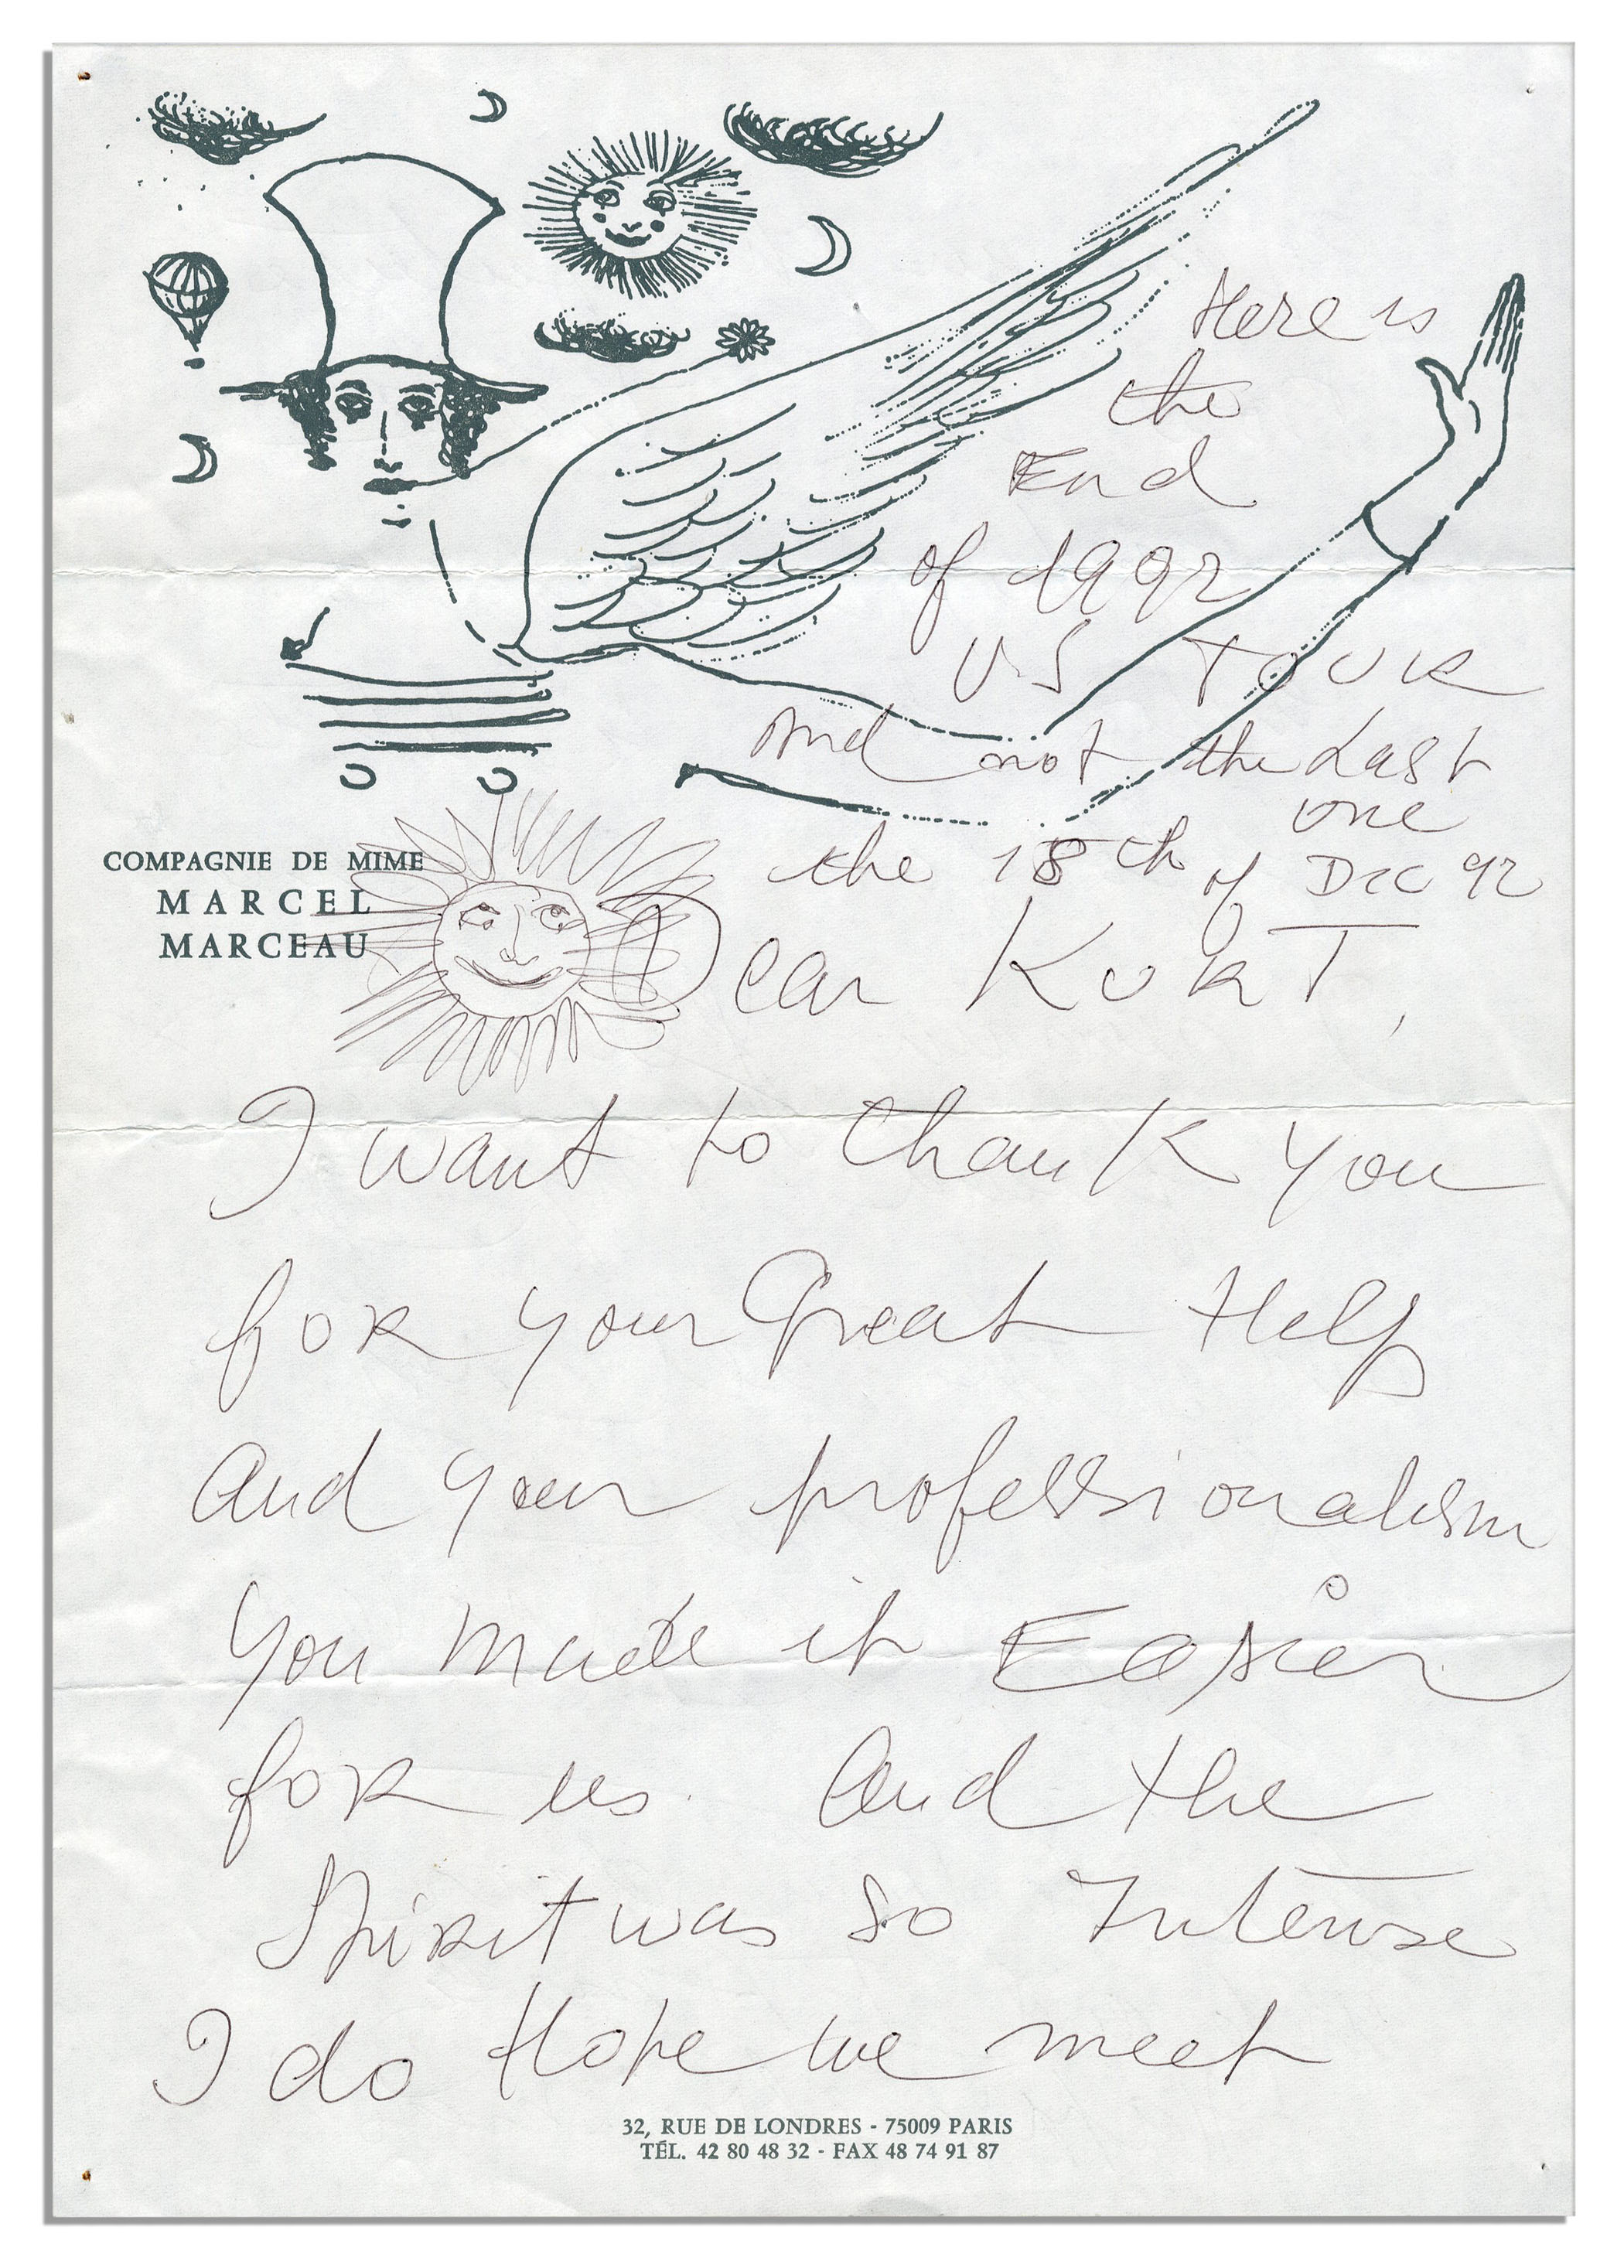 Here is
the
End
of 1992
U.S TOUR
And not the Last
one
the 18th of Dec 92
COMPAGNIE DE MIME
MARCEL
MARCEAU
Dear KURT,
I want to thank you
for your Great Help
And your professionalism
You made it Easier
for us. And the
Spirit was so Intense
I do Hope we meet
32, RUE DE LONDRES - 75009 PARIS
TÉL. 42 80 48 32 - FAX 48 74 91 87